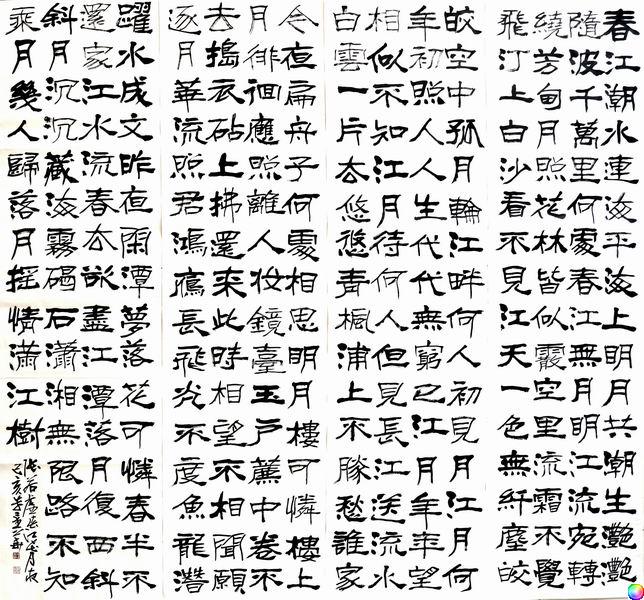 春江潮水連海平海上明月共潮生灩灩
隨波千萬里何處春江無月明江流宛轉
繞芳甸月照花林皆似霰空里流霜不覺
飛汀上白沙看不見江天一色無纖塵皎
皎空中孤月輪江畔何人初見月江月何
年初照人人生代代無窮已江月年年望
相似不知江月待何人但見長江送流水
白雲一片去悠悠青楓浦上不勝愁誰家
今夜扁舟子何處相思明月樓可憐樓上
月徘徊應照離人妝鏡臺玉戶簾中卷不
去搗衣砧上拂還來此時相望不相聞願
逐月華流照君鴻雁長飛光不度魚龍潛
躍水成文昨夜閑潭夢落花可憐春半不
還家江水流春去欲盡江潭落月復西斜
斜月沉沉藏海霧碣石瀟湘無限路不知
乘月幾人歸落月搖情滿江樹
張若虛春江花月夜